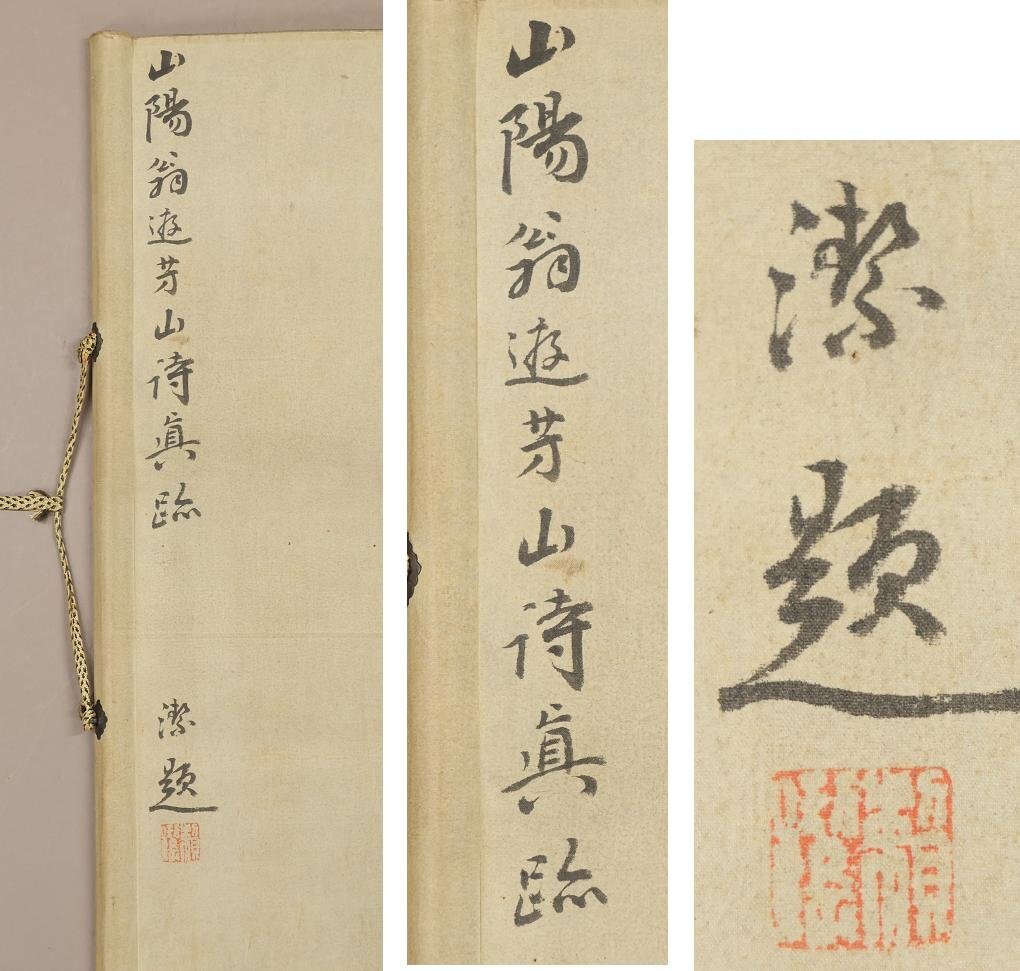 山陽翁遊芳山詩眞跡
潔題
山陽翁遊芳山詩眞跡
潔題